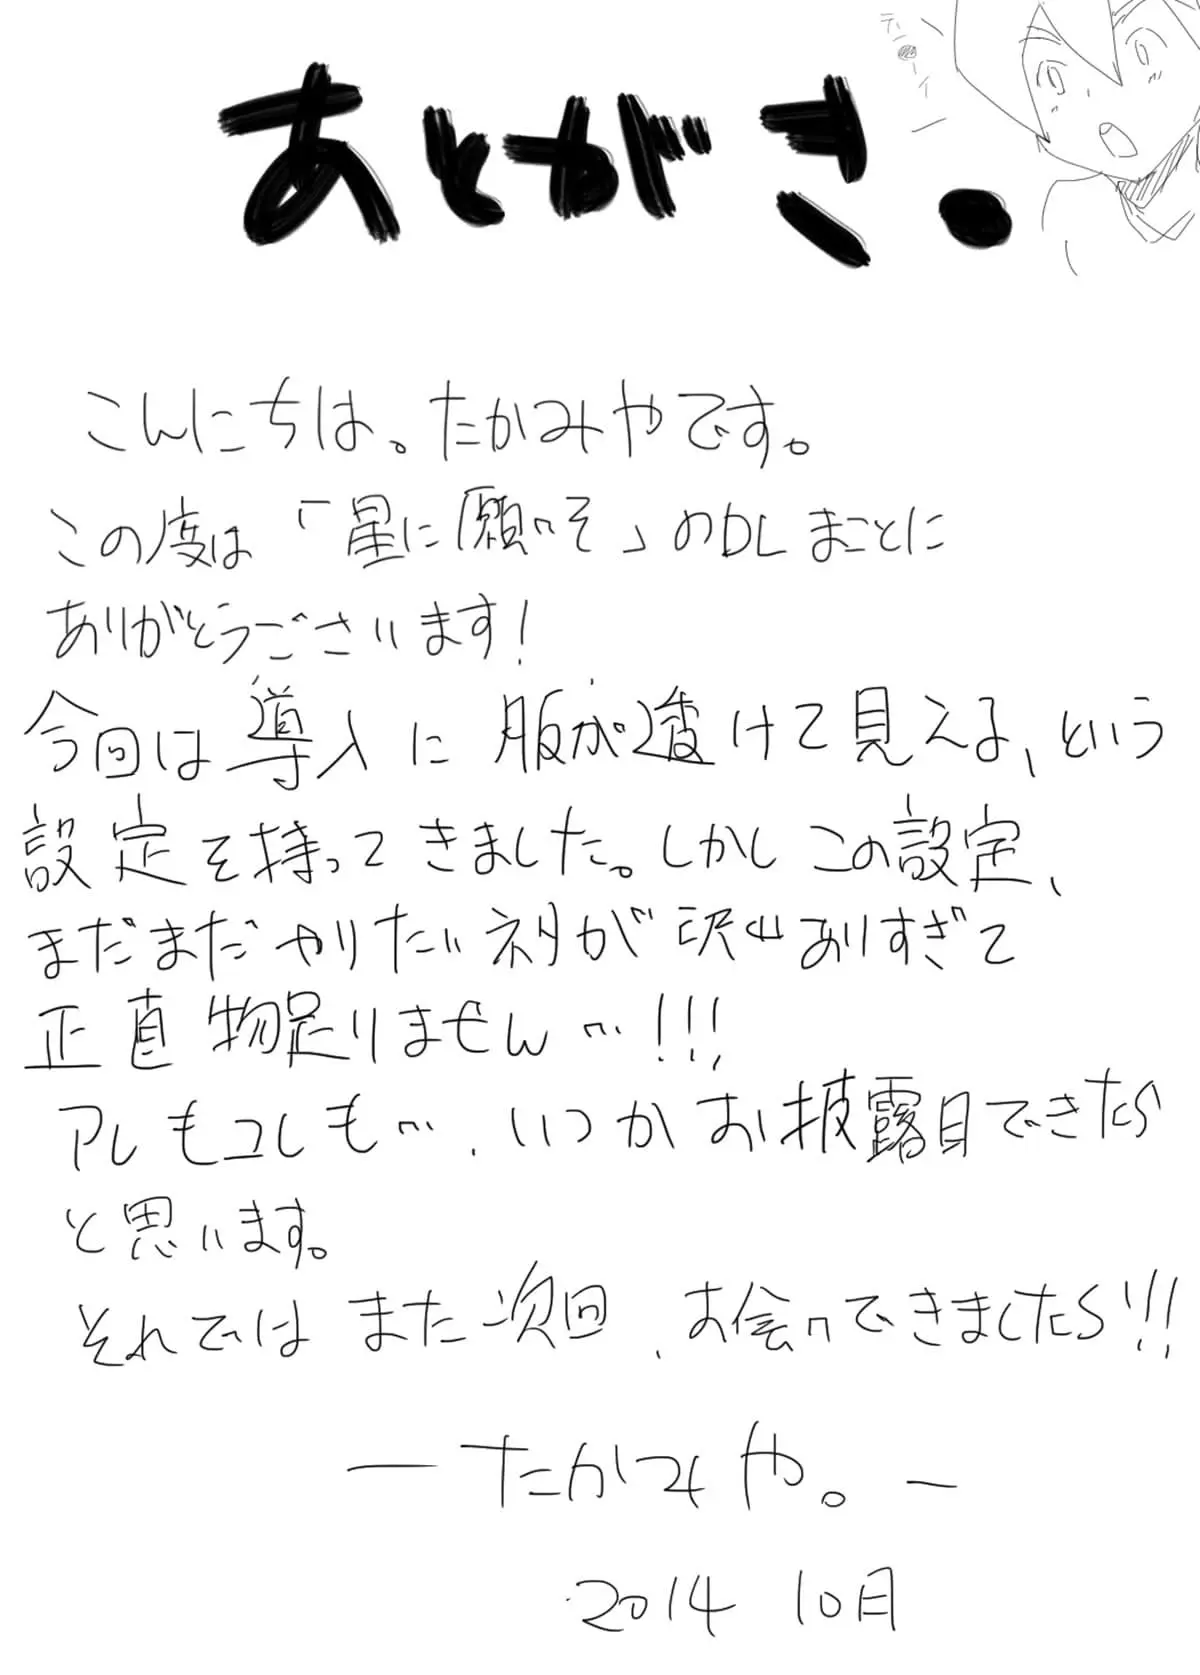 あとがき。
こんにちは。たかみやです。
この度は「星に願いを」のDLまことに
ありがとうございます!
今回は導入に服が透けて見える、という
設定を持ってきました。しかしこの設定、
まだまだやりたいネタが沢山ありすぎて
正直物足りません…!!!
アレもコレも…、いつかお披露目できたら
と思います。
それではまた次回、お会いできましたら!!!
ーたかみや。ー
2014 10月